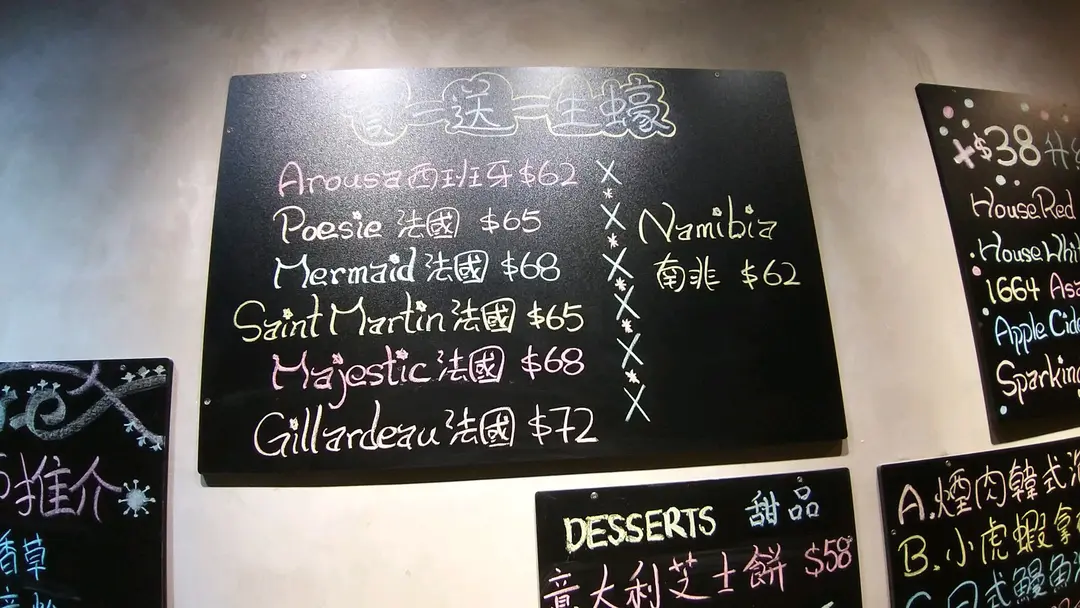 買一送一生蠔
Arousa西班牙$62
Poesie 法國 $65
Mermaid 法國 $68
Saint Martin 法國 $65
Majestic 法國 $68
Gillardeau 法國 $72
Namibia
南非 $62
DESSERTS 甜品
意大利芝士餅 $58
$38
House Red
House Whi
1664
Apple Cide
Sparkin
A.煙肉韓式
B.小虎蝦拿
日式鰻魚
推介
香草